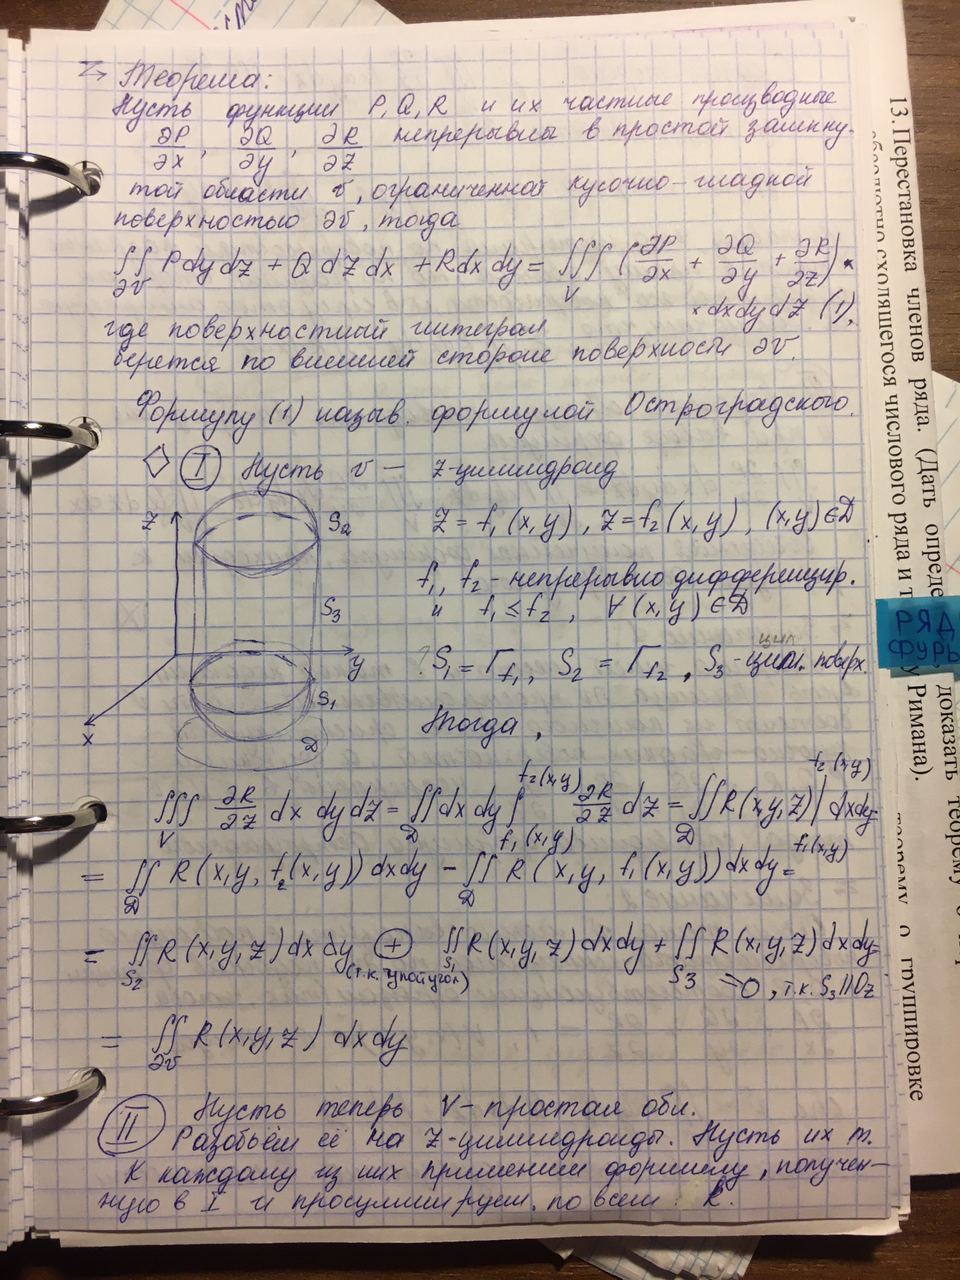 Теорема:
Пусть функции P, Q, R и их частные производные
∂P/∂x, ∂Q/∂y, ∂R/∂z непрерывны в простой замкну-
той области v, ограниченной кусочно-гладкой
поверхностью ∂v, тогда
∬_∂v Pdydz + Qdzdx + Rdxdy = ∭_V (∂P/∂x + ∂Q/∂y + ∂R/∂z) ·
× dxdydz (1),
где поверхностный интеграл
берется по внешней стороне поверхности ∂v.
Формулу (1) назыв. формулой Остроградского.
◇ I Пусть v – z-цилиндроид
z = f₁(x,y), z = f₂(x,y), (x,y)∈D
f₁, f₂ - непрерывно дифференцир.
и f₁ ≤ f₂, ∀(x,y)∈D
цил
? S₁ = Γ_f₁, S₂ = Γ_f₂, S₃ - цил. поверх.
Тогда,
z
S₂
S₃
y
S₁
x
D
∭_V ∂R/∂z dx dydz = ∬_D dxdy ∫_{f₁(x,y)}^{f₂(x,y)} ∂R/∂z dz = ∬_D R(x,y,z)|_{f₁(x,y)}^{f₂(x,y)} dxdy
= ∬_D R(x,y,f₂(x,y))dxdy - ∬_D R(x,y,f₁(x,y))dxdy =
= ∬_S₂ R(x,y,z)dxdy ⊕ ∬_S₁ R(x,y,z)dxdy + ∬_S₃ R(x,y,z)dxdy
(т.к. тупой угол)
=0, т.к. S₃||Oz
= ∬_∂v R(x,y,z) dxdy
II Пусть теперь V - простая обл.
Разобьём её на z-цилиндроиды. Пусть их m.
К каждому из них применим формулу, получен-
ную в I и просуммируем по всем k.
13. Перестановка членов ряда. (Дать опреде
сходящегося числового ряда и
доказать теорему о
Римана).
теорему о группировке
РЯД
ФУРЬ